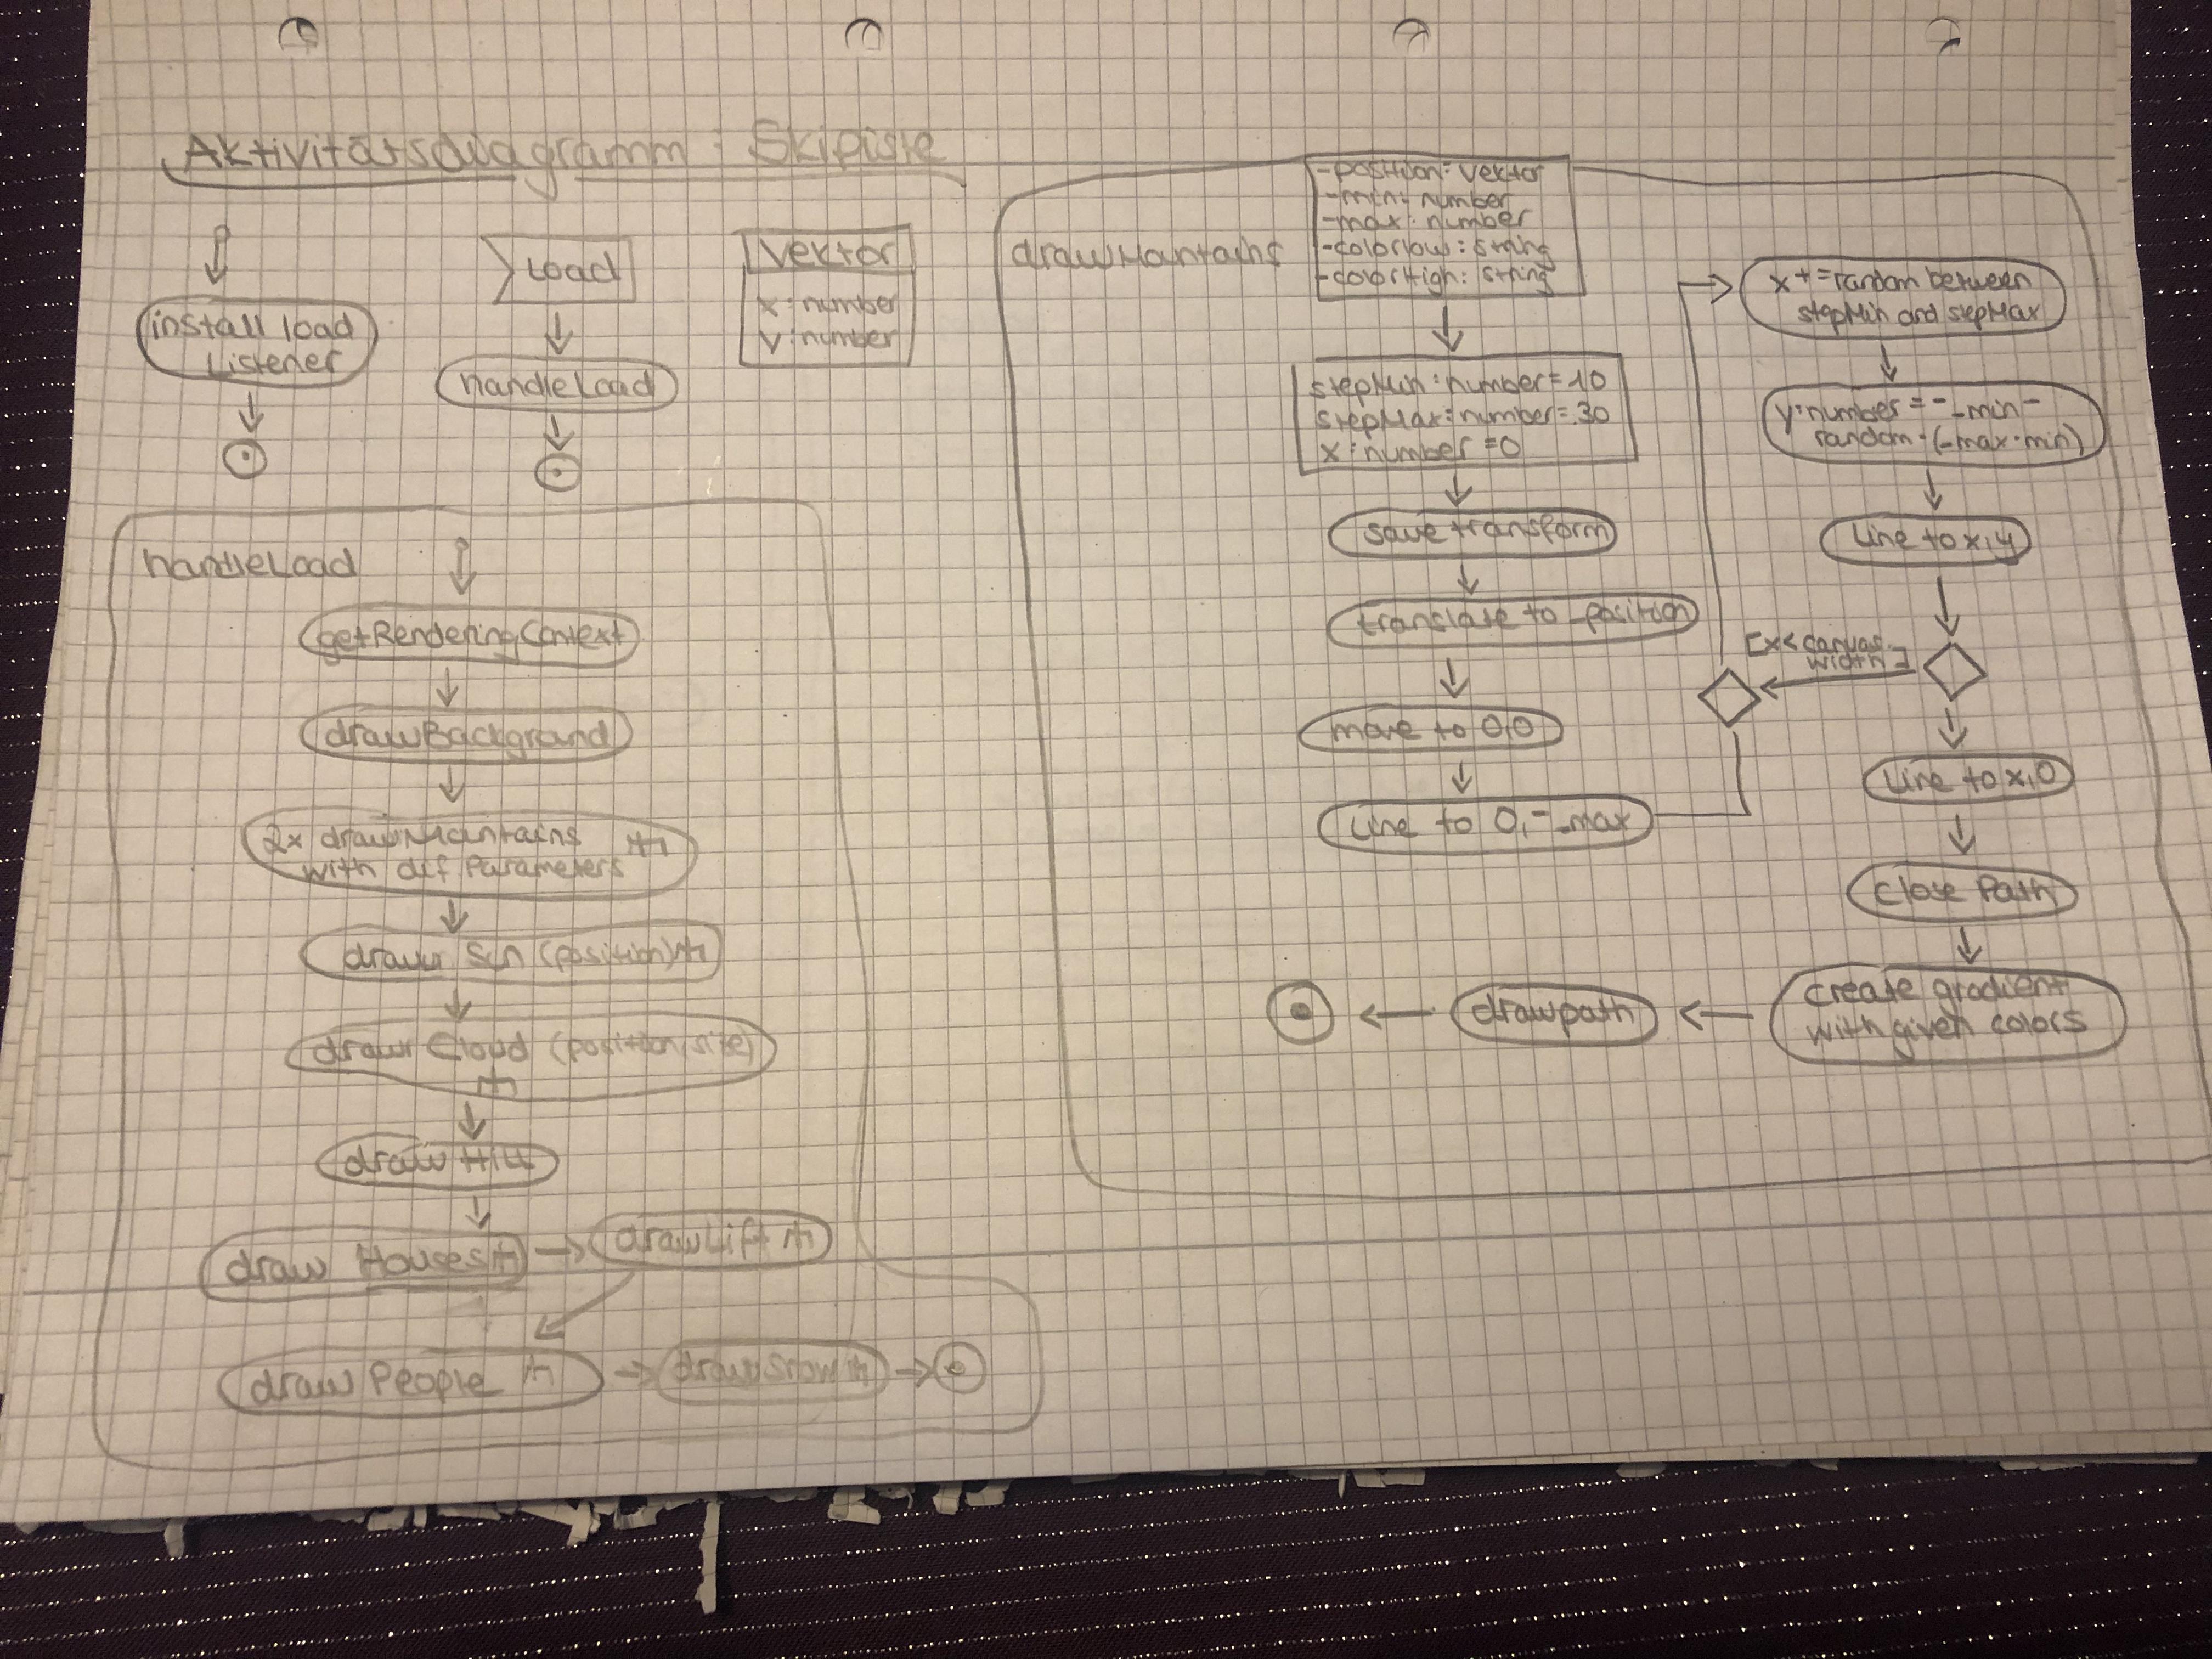 Aktivitätsdiagramm: Skipiste
install load
Listener
Load
handleLoad
Vektor
x: number
y: number
handleLoad
getRenderingContext
drawBackground
2x drawMountains
with dif Parameters
draw Sun (position)
draw Cloud (position size)
draw Hill
draw House
drawLift
draw People
drawSnow
drawMountains
-position: Vektor
-min: number
-max: number
-colorlow: string
-colorHigh: string
stepMin: number=10
stepMax: number=30
x: number=0
Save transform
translate to _position
move to 0,0
Line to 0,-_max
x += random between
stepMin and stepMax
y: number = -_min-
random · (-max-min)
Line to x,y
[x< canvas
width]
Line to x,0
Close Path
Create gradient
with given colors
drawpath